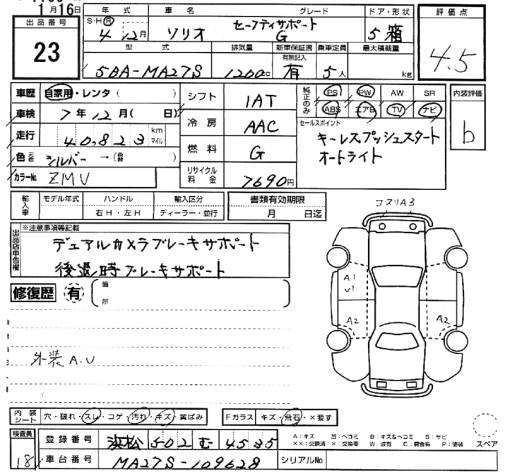 1月16日
出品番号
23
年式 車名 グレード ドア・形状
S・H R 4年12月 ソリオ セーフティサポート G 5 箱
型式 排気量 新車保証書 有無記入 乗車定員 最大積載量
5BA-MA27S 1200cc 有 5人 kg
評価点
4.5
車歴 自家用・レンタ ( )
車検 7年12月( 日)
走行 40,823 km マイル
色 シルバー →( )
カラーNo. ZMV
シフト 1AT
冷房 AAC
燃料 G
リサイクル料金 7690円
純正のみ PS PW AW SR
ABS エアB TV ナビ
セールスポイント
キーレスプッシュスタート
オートライト
内装評価
b
輸入車 モデル年式 ハンドル 輸入区分 書類有効期限
年 右H・左H ディーラー・並行 月 日迄
出品店申告欄 ※注意事項等記載
デュアルカメラブレーキサポート
後退時ブレーキサポート
修復歴 有 ( 箇所
外装A.U
コスリA3
A1
U1
A2
A2
内装シート 穴・破れ・スレ・コゲ・汚れ・キズ・黄ばみ Fガラス キズ・飛石・×要す
検査員 18
登録番号 浜松502む4535
車台番号 MA27S-109628
シリアルNo.
A:キズ
スペア